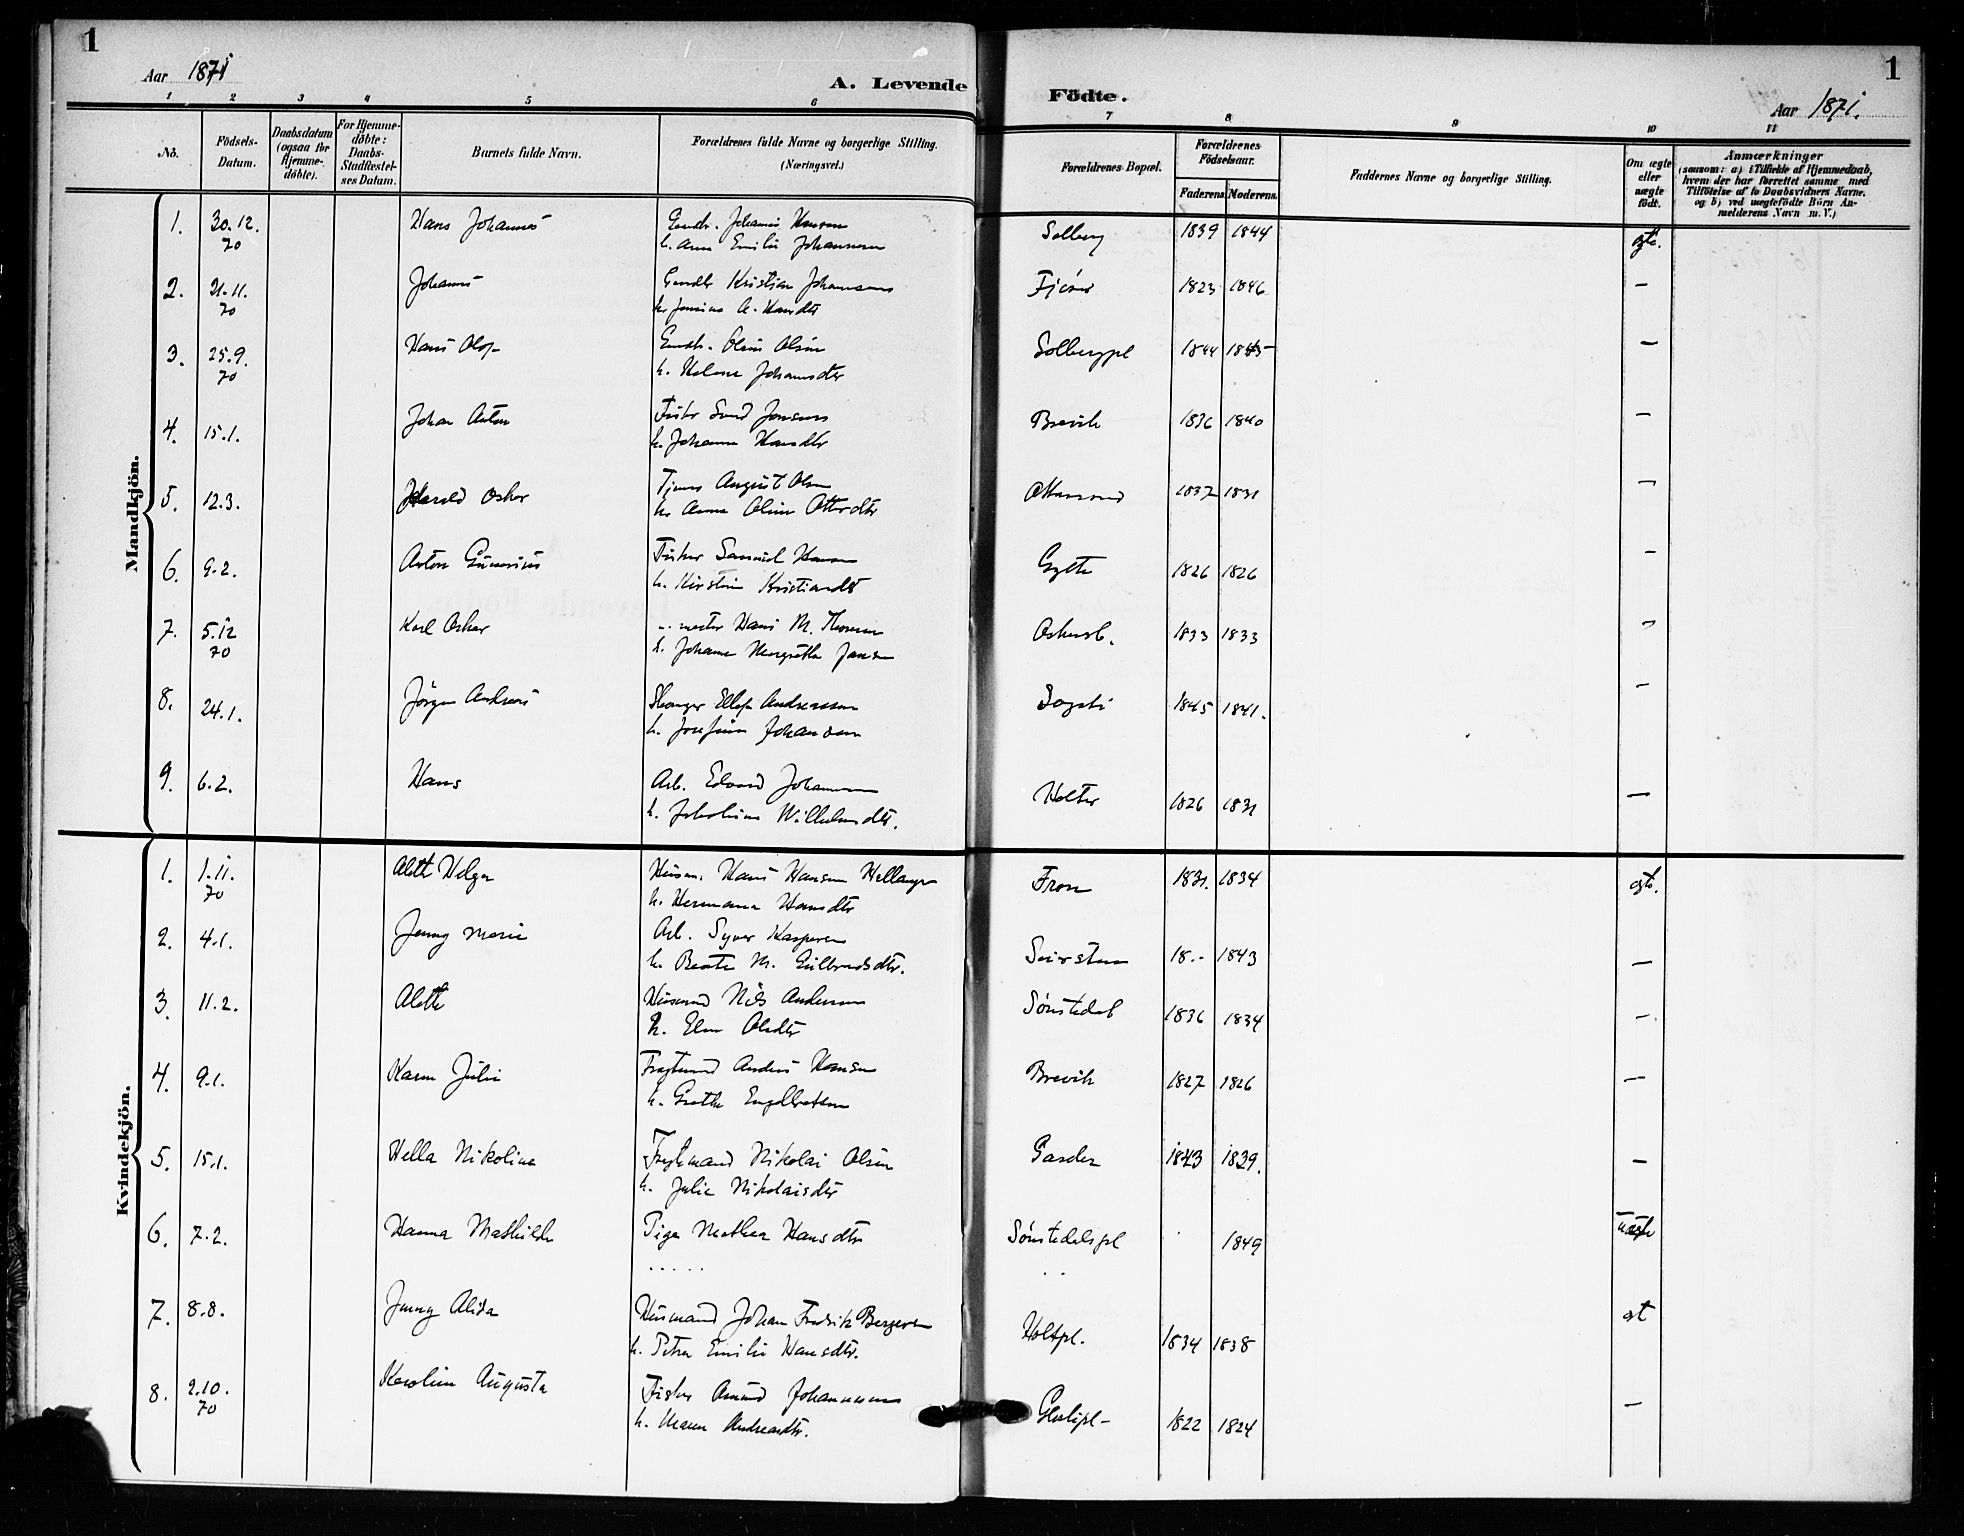 1
Aar 1871
A. Levende
Födte.
1
Aar 1871.
1 2 3 4 5 6 7 8 9 10 11
No.
Födsels-Datum.
Daabsdatum (ogsaa for Hjemme-döbte).
For Hjemme-döbte: Daabs-Stadfæstel-ses Datum.
Barnets fulde Navn.
Forældrenes fulde Navne og borgerlige Stilling. (Næringsvei.)
Forældrenes Bopæl.
Forældrenes Födselsaar.
Faderens Moderens
Faddernes Navne og borgerlige Stilling.
Om ægte eller uægte födt.
Anmærkninger
(saasom: a) i Tilfælde af Hjemmedaab,
hvem der har forrettet samme med
Tilföielse af to Daabsvidners Navne.
og b) ved uægtefödte Börn An-
melderens Navn m. V.)
Mandkjön.
1. 30.12. 70 Hans Johannes Johannes Hansen Solberg 1839 1844 egte.
h. Anna Emilie Johannesen
2. 21.11. 70 Johannes Kristian Johannesen 1823 1846 —
h. Jensine A. Hansdtr
3. 25.9. 70 Hans Olaf Olsen Solbergpl 1844 1845 —
h. Helene Johannsdtr
4. 15.1. Johan Anton Fisker Jensen Brevik 1836 1840 —
h. Johanne Hansdtr
5. 12.3. Harald Oskar August Olsen 1837 1831 —
h. Anna Oline Ottersdtr
6. 9.2. Anton Gunerius Fisker Samuel Hansen 1826 1826 —
h. Kirstine Kristiansdt
7. 5.12 70 Karl Oskar Hans M. 1833 1833 —
h. Johanne Margrethe Jansen
8. 24.1. Jörgen Andreas Ellef Andreassen 1845 1841. —
h. Josefine Johansen
9. 6.2. Hans Arb. Edvard Johannesen Holter 1826 1831 —
h. Wilhelmsdtr.
Kvindekjön.
1. 1.11. 70 Alette Helga Hans Hansen Fron 1831. 1834 egte.
h. Hermana Hansdtr
2. 4.1. Jenny Marie Arb. Syver Kaspersen Seiersten 18.- 1843 —
h. Beate M. Gulbrandsdtr.
3. 11.2. Alette Husmand Nils Andersen Sønstedal 1836 1834 —
h. Elen Olsdtr
4. 9.1. Karen Julie Anders Hansen Brevik 1827 1826 —
h. Grethe Engelbretsen
5. 15.1. Hella Nikoline Nikolai Olsen Garder 1843 1839. —
h. Julie Nikolaisdtr
6. 7.2. Hanna Mathilde Pige Mathea Hansdtr Sønstedalspl . 1849 uægte
.....
..
7. 8.8. Jenny Alida Husmand Johan Fredrik Bergersen Holtpl. 1834 1838
h. Petra Emilie Hansdtr.
8. 2.10. 70 Karoline Augusta Fisker Amund Johannesen 1822 1824 —
h. Maren Andreasdtr.